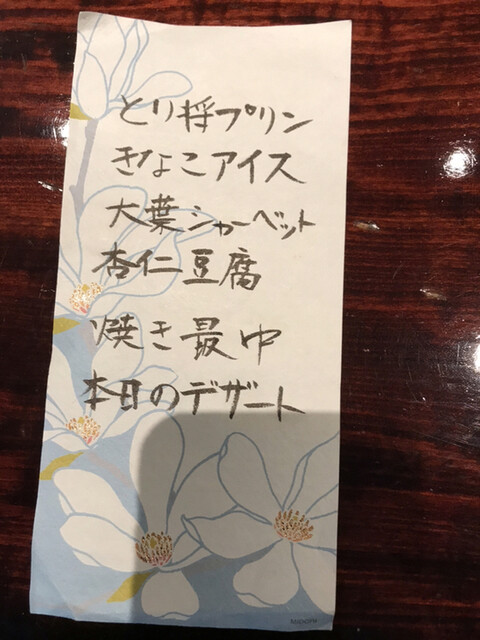 とり将プリン
きなこアイス
大葉シャーベット
杏仁豆腐
焼き最中
本日のデザート